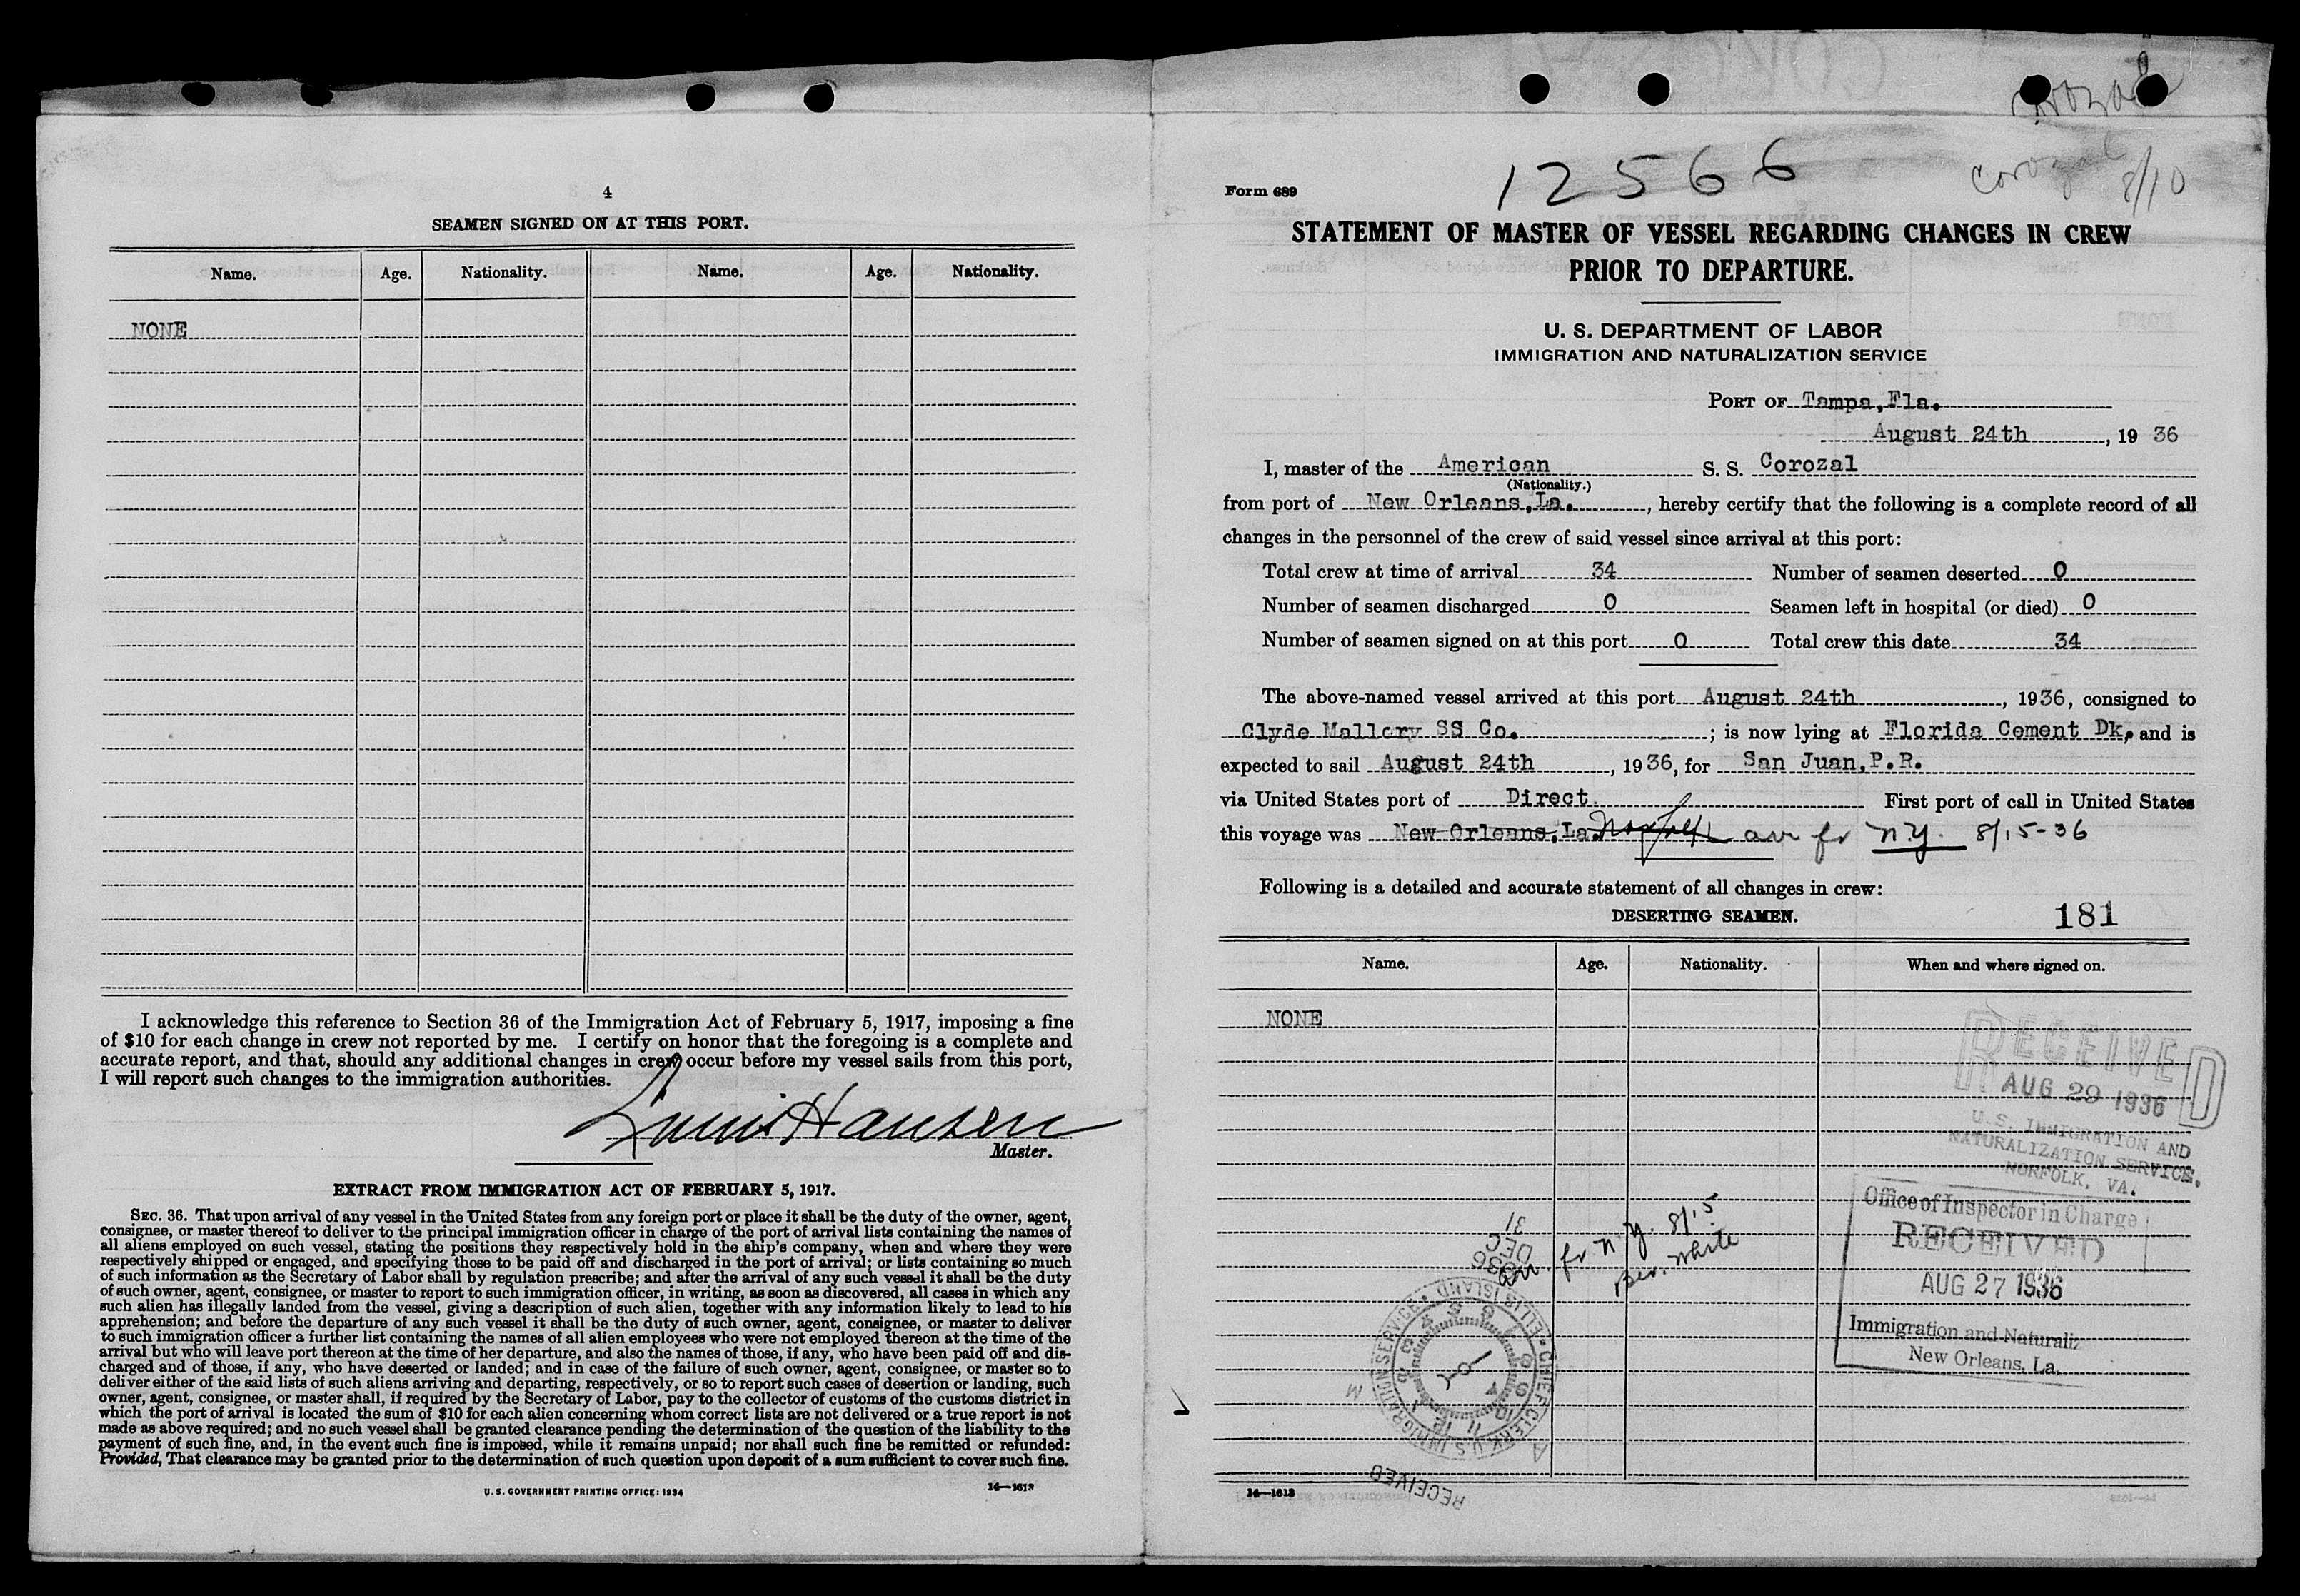 4
SEAMEN SIGNED ON AT THIS PORT.
Name. Age. Nationality. Name. Age. Nationality.
NONE
I acknowledge this reference to Section 36 of the Immigration Act of February 5, 1917, imposing a fine
of $10 for each change in crew not reported by me. I certify on honor that the foregoing is a complete and
accurate report, and that, should any additional changes in crew occur before my vessel sails from this port,
I will report such changes to the immigration authorities.
Louis Hansen
Master.
EXTRACT FROM IMMIGRATION ACT OF FEBRUARY 5, 1917.
SEC. 36. That upon arrival of any vessel in the United States from any foreign port or place it shall be the duty of the owner, agent,
consignee, or master thereof to deliver to the principal immigration officer in charge of the port of arrival lists containing the names of
all aliens employed on such vessel, stating the positions they respectively hold in the ship's company, when and where they were
respectively shipped or engaged, and specifying those to be paid off and discharged in the port of arrival; or lists containing so much
of such information as the Secretary of Labor shall by regulation prescribe; and after the arrival of any such vessel it shall be the duty
of such owner, agent, consignee, or master to report to such immigration officer, in writing, as soon as discovered, all cases in which any
such alien has illegally landed from the vessel, giving a description of such alien, together with any information likely to lead to his
apprehension; and before the departure of any such vessel it shall be the duty of such owner, agent, consignee, or master to deliver
to such immigration officer a further list containing the names of all alien employees who were not employed thereon at the time of the
arrival but who will leave port thereon at the time of her departure, and also the names of those, if any, who have been paid off and dis-
charged and of those, if any, who have deserted or landed; and in case of the failure of such owner, agent, consignee, or master so to
deliver either of the said lists of such aliens arriving and departing, respectively, or so to report such cases of desertion or landing, such
owner, agent, consignee, or master shall, if required by the Secretary of Labor, pay to the collector of customs of the customs district in
which the port of arrival is located the sum of $10 for each alien concerning whom correct lists are not delivered or a true report is not
made as above required; and no such vessel shall be granted clearance pending the determination of the question of the liability to the
payment of such fine, and, in the event such fine is imposed, while it remains unpaid; nor shall such fine be remitted or refunded:
Provided, That clearance may be granted prior to the determination of such question upon deposit of a sum sufficient to cover such fine.
U. S. GOVERNMENT PRINTING OFFICE: 1934
14—1613
Corozal
12566
Corozal 8/10
Form 689
STATEMENT OF MASTER OF VESSEL REGARDING CHANGES IN CREW
PRIOR TO DEPARTURE.
U. S. DEPARTMENT OF LABOR
IMMIGRATION AND NATURALIZATION SERVICE
PORT OF Tampa,Fla.
August 24th, 19 36
I, master of the American S. S. Corozal
(Nationality.)
from port of New Orleans,La., hereby certify that the following is a complete record of all
changes in the personnel of the crew of said vessel since arrival at this port:
Total crew at time of arrival 34 Number of seamen deserted 0
Number of seamen discharged 0 Seamen left in hospital (or died) 0
Number of seamen signed on at this port 0 Total crew this date 34
The above-named vessel arrived at this port August 24th, 1936, consigned to
Clyde Mallory SS Co.; is now lying at Florida Cement Dk, and is
expected to sail August 24th, 1936, for San Juan,P.R.
via United States port of Direct. First port of call in United States
this voyage was New Orleans,La. Norfolk arr fr N.Y. 8/15-36
Following is a detailed and accurate statement of all changes in crew:
DESERTING SEAMEN.
181
Name. Age. Nationality. When and where signed on.
NONE
RECEIVED
AUG 29 1936
U.S. IMMIGRATION AND
NATURALIZATION SERVICE.
NORFOLK. VA.
Office of Inspector in Charge
RECEIVED
AUG 27 1936
Immigration and Naturaliz
New Orleans, La.
arr. fr N.Y. 8/15
White
1936
DEC
31
CHIEF CLERK U.S. IMMIGRATION SERVICE ELLIS ISLAND
RECEIVED
14—1613